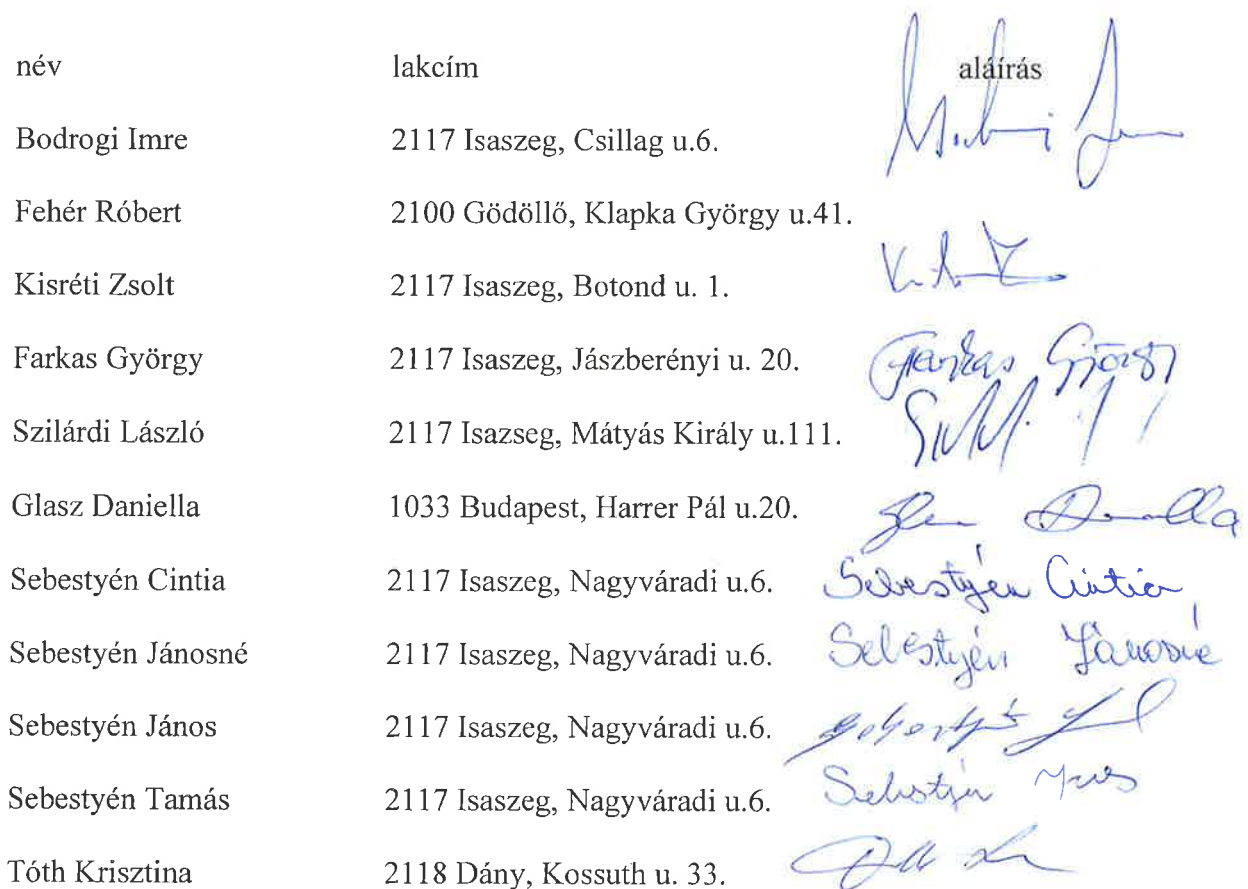 név lakcím aláírás
Bodrogi Imre 2117 Isaszeg, Csillag u.6.
Fehér Róbert 2100 Gödöllő, Klapka György u.41.
Kisréti Zsolt 2117 Isaszeg, Botond u. 1.
Farkas György 2117 Isaszeg, Jászberényi u. 20. Farkas György
Szilárdi László 2117 Isazseg, Mátyás Király u.111.
Glasz Daniella 1033 Budapest, Harrer Pál u.20.
Sebestyén Cintia 2117 Isaszeg, Nagyváradi u.6. Sebestyén Cintia
Sebestyén Jánosné 2117 Isaszeg, Nagyváradi u.6. Sebestyén Jánosné
Sebestyén János 2117 Isaszeg, Nagyváradi u.6.
Sebestyén Tamás 2117 Isaszeg, Nagyváradi u.6.
Tóth Krisztina 2118 Dány, Kossuth u. 33.